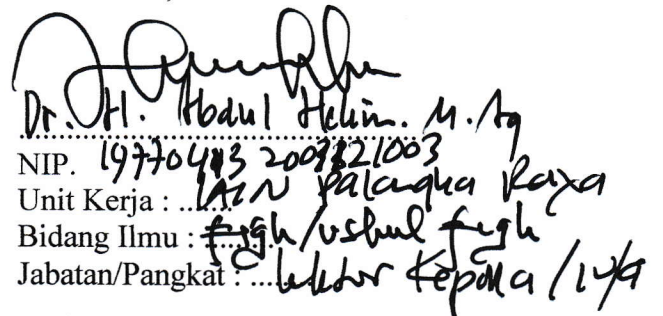 Dr. H. Abdul Helim. M. Ag
NIP. 19770413 200312 1003
Unit Kerja : ...... IAIN Palangka Raya
Bidang Ilmu : fiqh/ushul fiqh
Jabatan/Pangkat : .... Lektor Kepala / IV/a